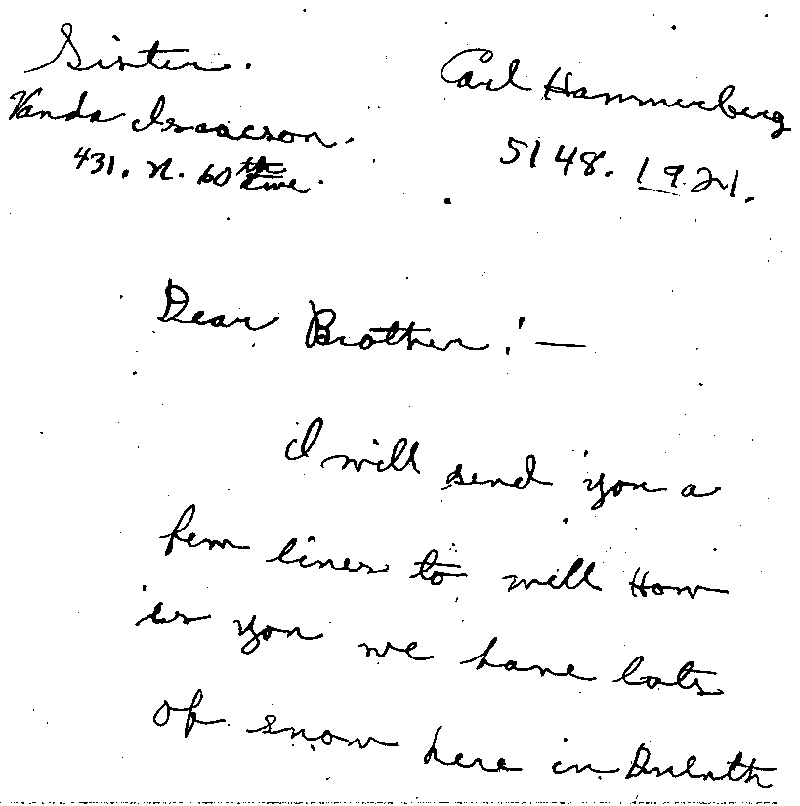 Sister.
Vanda Isaacson.
431. N. 60th Ave.
Carl Hammerberg
5148. 1921.
Dear Brother! —
I will send you a
few lines to will How
is you we have lots
of snow here in Duluth